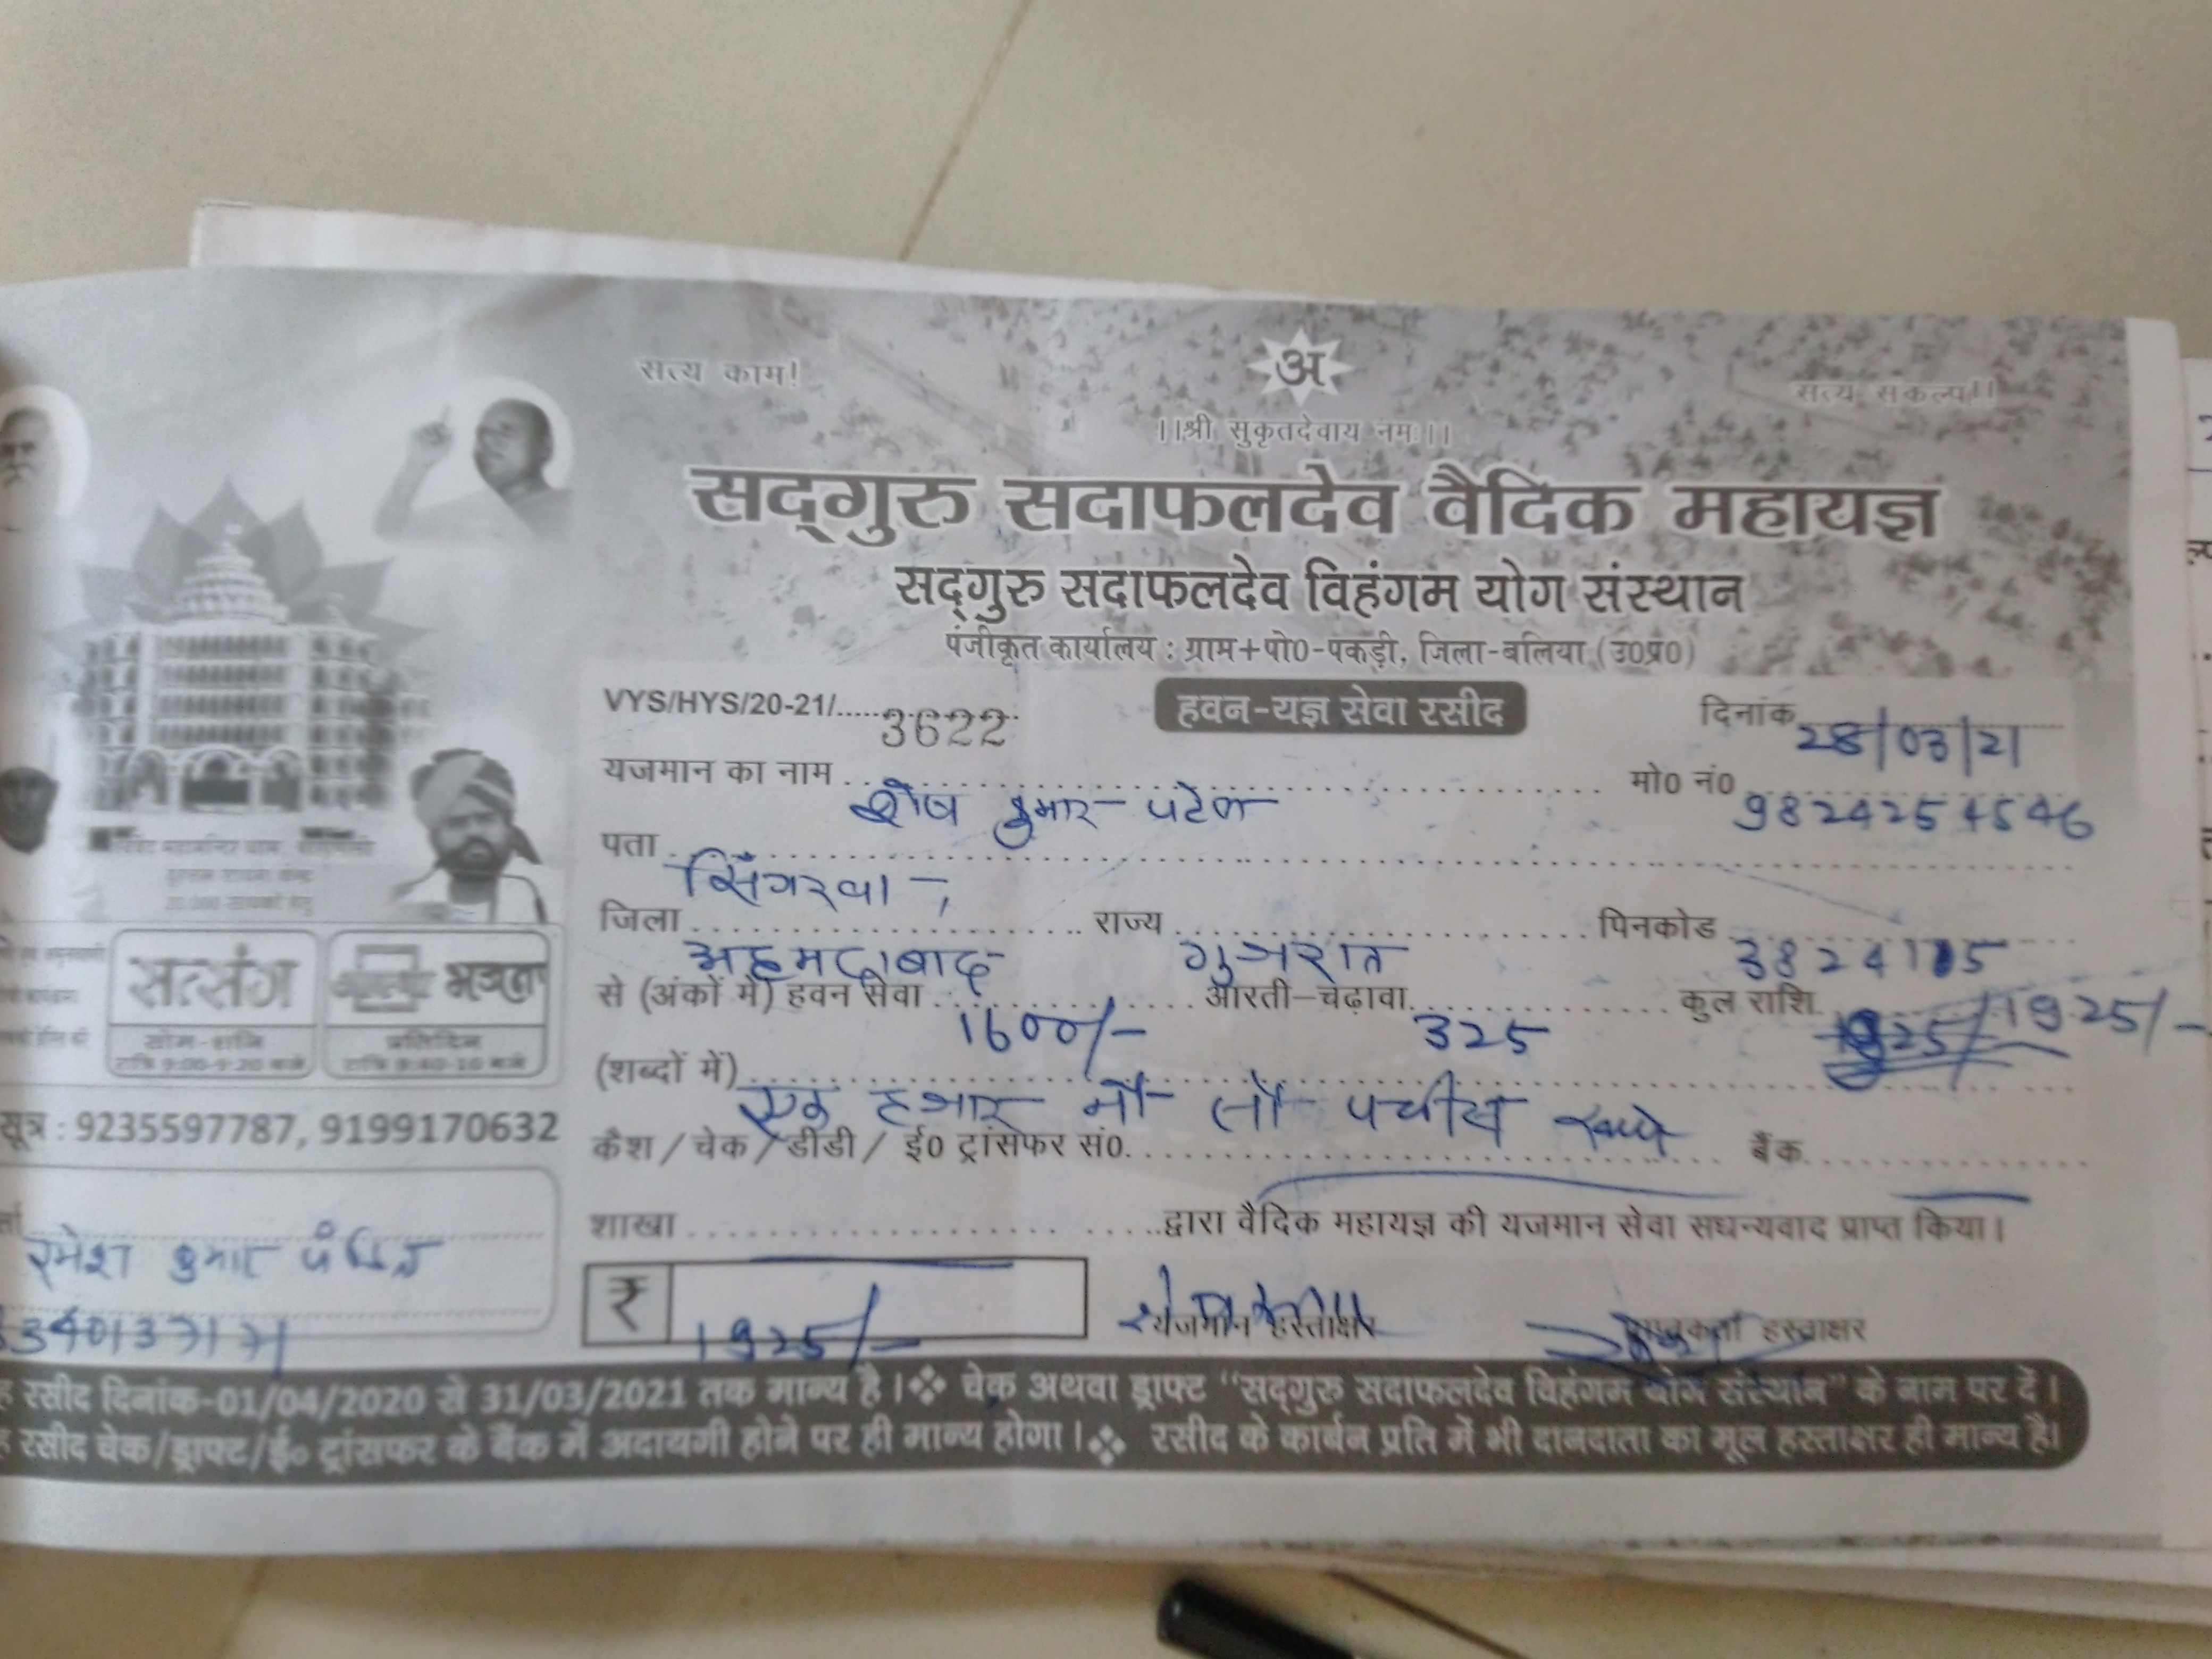 सत्य काम!
अ
सत्य संकल्प!!
।।श्री सुकृतदेवाय नमः।।
सद्गुरु सदाफलदेव वैदिक महायज्ञ
सद्गुरु सदाफलदेव विहंगम योग संस्थान
पंजीकृत कार्यालय : ग्राम+पो0-पकड़ी, जिला-बलिया (उ0प्र0)
VYS/HYS/20-21/..... 3622 हवन-यज्ञ सेवा रसीद दिनांक 28/03/21
यजमान का नाम शेष कुमार पटेल मो0 नं0 9824254546
पता सिंगरवा,
जिला अहमदाबाद राज्य गुजरात पिनकोड
से (अंकों में) हवन सेवा 1600/- आरती-चढ़ावा 325 कुल राशि 1925/-
(शब्दों में) एक हजार नौ सौ पचीस रूपये
कैश / चेक / डीडी / ई0 ट्रांसफर सं0. बैंक
शाखा द्वारा वैदिक महायज्ञ की यजमान सेवा सधन्यवाद प्राप्त किया।
₹ 1925/- यजमान हस्ताक्षर हस्ताक्षर
सत्संग
सोम-शनि
रात्रि 9:00-9:20 बजे
भजन
प्रतिदिन
रात्रि 9:40-10 बजे
सूत्र : 9235597787, 9199170632
रमेश कुमार पंडित
रसीद दिनांक-01/04/2020 से 31/03/2021 तक मान्य है।❖ चेक अथवा ड्राफ्ट “सद्गुरु सदाफलदेव विहंगम योग संस्थान” के नाम पर दें।
रसीद चेक/ड्राफ्ट/ई० ट्रांसफर के बैंक में अदायगी होने पर ही मान्य होगा।❖ रसीद के कार्बन प्रति में भी दानदाता का मूल हस्ताक्षर ही मान्य है।